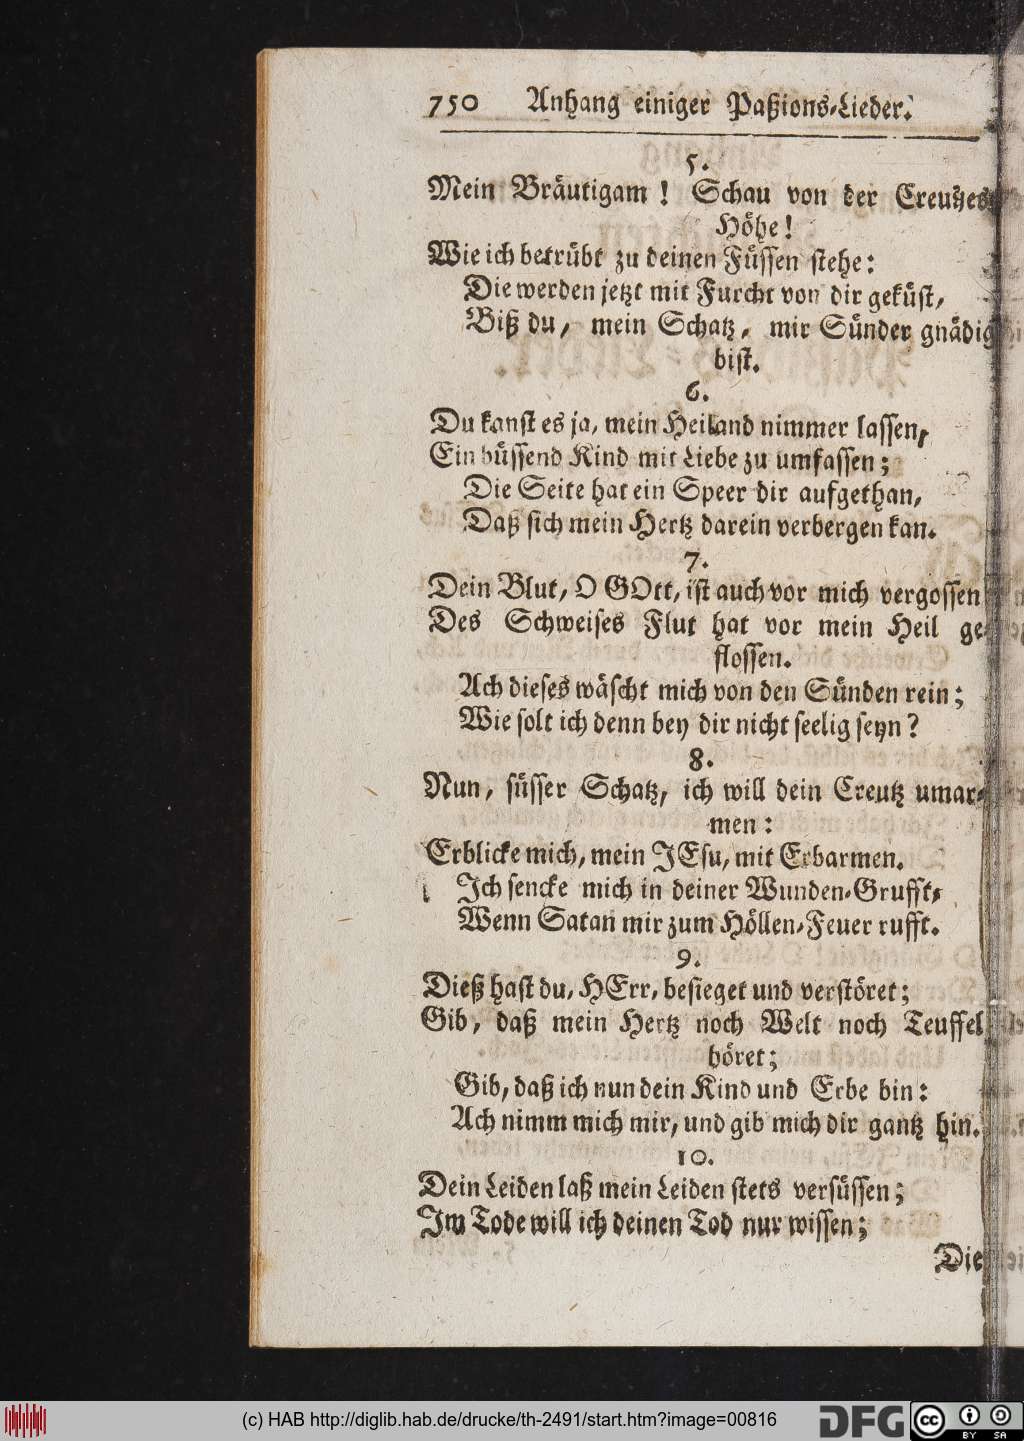 750 Anhang einiger Paßions-Lieder.
5.
Mein Bräutigam! Schau von der Creutzes
Höhe!
Wie ich betrübt zu deinen Füssen stehe:
Die werden jetzt mit Furcht von dir geküst,
Biß du, mein Schatz, mir Sünder gnädig
bist.
6.
Du kanst es ja, mein Heiland nimmer lassen,
Ein büssend Kind mit Liebe zu umfassen;
Die Seite hat ein Speer dir aufgethan,
Daß sich mein Hertz darein verbergen kan.
7.
Dein Blut, O GOtt, ist auch vor mich vergossen
Des Schweises Flut hat vor mein Heil ge-
flossen.
Ach dieses wäscht mich von den Sünden rein;
Wie solt ich denn bey dir nicht seelig seyn?
8.
Nun, süsser Schatz, ich will dein Creutz umar-
men:
Erblicke mich, mein JEsu, mit Erbarmen.
Ich sencke mich in deiner Wunden-Grufft,
Wenn Satan mir zum Höllen-Feuer rufft.
9.
Dieß hast du, HErr, besieget und verstöret;
Gib, daß mein Hertz noch Welt noch Teuffel
höret;
Gib, daß ich nun dein Kind und Erbe bin:
Ach nimm mich mir, und gib mich dir gantz hin.
10.
Dein Leiden laß mein Leiden stets versüssen;
Im Tode will ich deinen Tod nur wissen;
Die
(c) HAB http://diglib.hab.de/drucke/th-2491/start.htm?image=00816
DFG
cc
BY SA